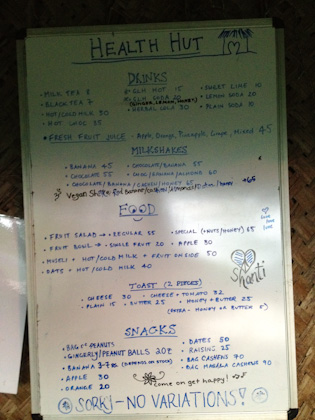 HEALTH HUT
DRINKS
• MILK TEA 8
• BLACK TEA 7
• HOT/COLD MILK 30
• HOT CHOC 35
HOT 15
SODA 20
(GINGER, LEMON, HONEY)
HERBAL COLD 30
• SWEET LIME 10
• LEMON SODA 20
• PLAIN SODA
• FRESH FRUIT JUICE - Apple, Orange, Pineapple, Grape, Mixed 45
MILKSHAKES
• BANANA 45
• CHOCOLATE 55
• CHOCOLATE/BANANA 55
/BANANA/ALMOND 60
• CHOCOLATE/BANANA/CASHEW/HONEY 65
Vegan Shake 65
FOOD
• FRUIT SALAD → REGULAR 55
• SPECIAL (+NUTS/HONEY) 65
• FRUIT BOWL → SINGLE FRUIT 20
• APPLE 30
• MUSELI + HOT/COLD MILK + FRUIT ON SIDE 50
• DATE + HOT/COLD MILK 40
Shanti
TOAST (2 PIECES)
• CHEESE 30
• CHEESE + TOMATO 32
• PLAIN 15
• BUTTER 25
• HONEY + BUTTER 25
(EXTRA - HONEY OR BUTTER 5)
SNACKS
• BAG OF PEANUTS
• GINGERLY/PEANUT BALLS 20z
• BANANA 3-7 (DEPENDS ON STOCK)
• APPLE 30
• ORANGE 20
• DATES 50
• RAISINS 25
• BAG CASHEWS 70
• BAG MASALA CASHEWS 90
Come on get happy!
SORRY - NO VARIATIONS!